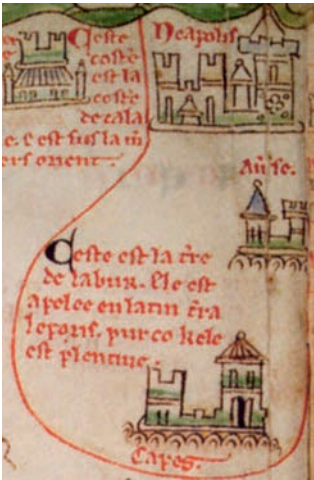 Ceste
coste
est la
coste
de cala
e. ⁊ est sus la m̄
ers orient.
Neapolis
Au̓se.
Ceste est la t̄re
de labur. Ele est
apelee en latin t̄ra
leporis. pur co kele
est plentiue.
Capes.